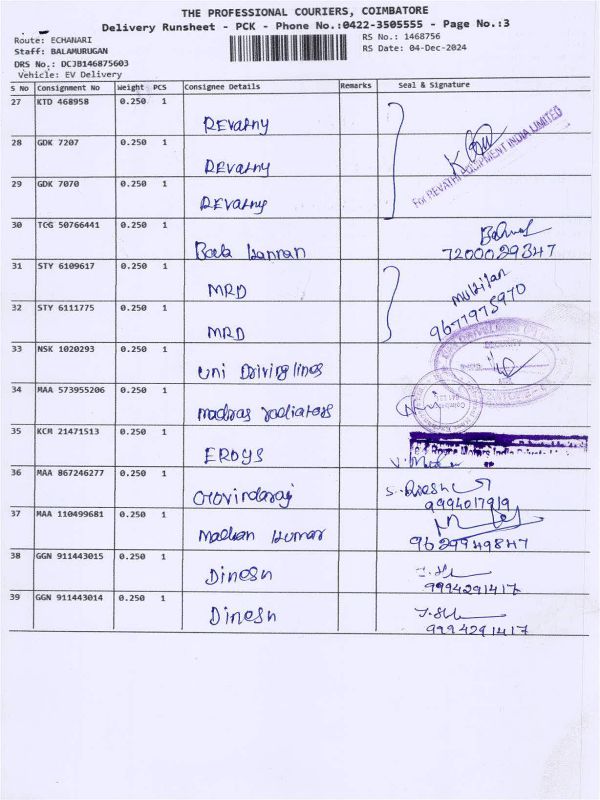 THE PROFESSIONAL COURIERS, COIMBATORE
Delivery Runsheet - PCK - Phone No.:0422-3505555 - Page No.:3
Route: ECHANARI RS No.: 1468756
Staff: BALAMURUGAN RS Date: 04-Dec-2024
DRS No.: DCJB146875603
Vehicle: EV Delivery
S No Consignment No Weight PCS Consignee Details Remarks Seal & Signature
27 KTD 468958 0.250 1 REvathy
28 GDK 7207 0.250 1 REvathy
For REVATHI EQUIPMENT INDIA LIMITED
29 GDK 7070 0.250 1 REvathy
30 TCG 50766441 0.250 1 Bala kannan
7200029347
31 STY 6109617 0.250 1 MRD
9677975970
32 STY 6111775 0.250 1 MRD
33 NSK 1020293 0.250 1 Uni Drivinglines
SECURITY
34 MAA 573955206 0.250 1 madras radiators
Coimbatore
35 KCM 21471513 0.250 1 EROYS
36 MAA 867246277 0.250 1 Govindaraj
9994017919
37 MAA 110499681 0.250 1 Madhan kumar
9629949847
38 GGN 911443015 0.250 1 Dinesh
9994291417
39 GGN 911443014 0.250 1 Dinesh
9994291417